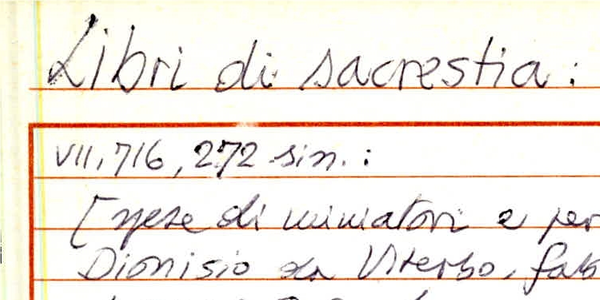 Libri di sacrestia:
VII, 716, 272 sin.:
[spese di miniatori e per
Dionisio da Viterbo, fab